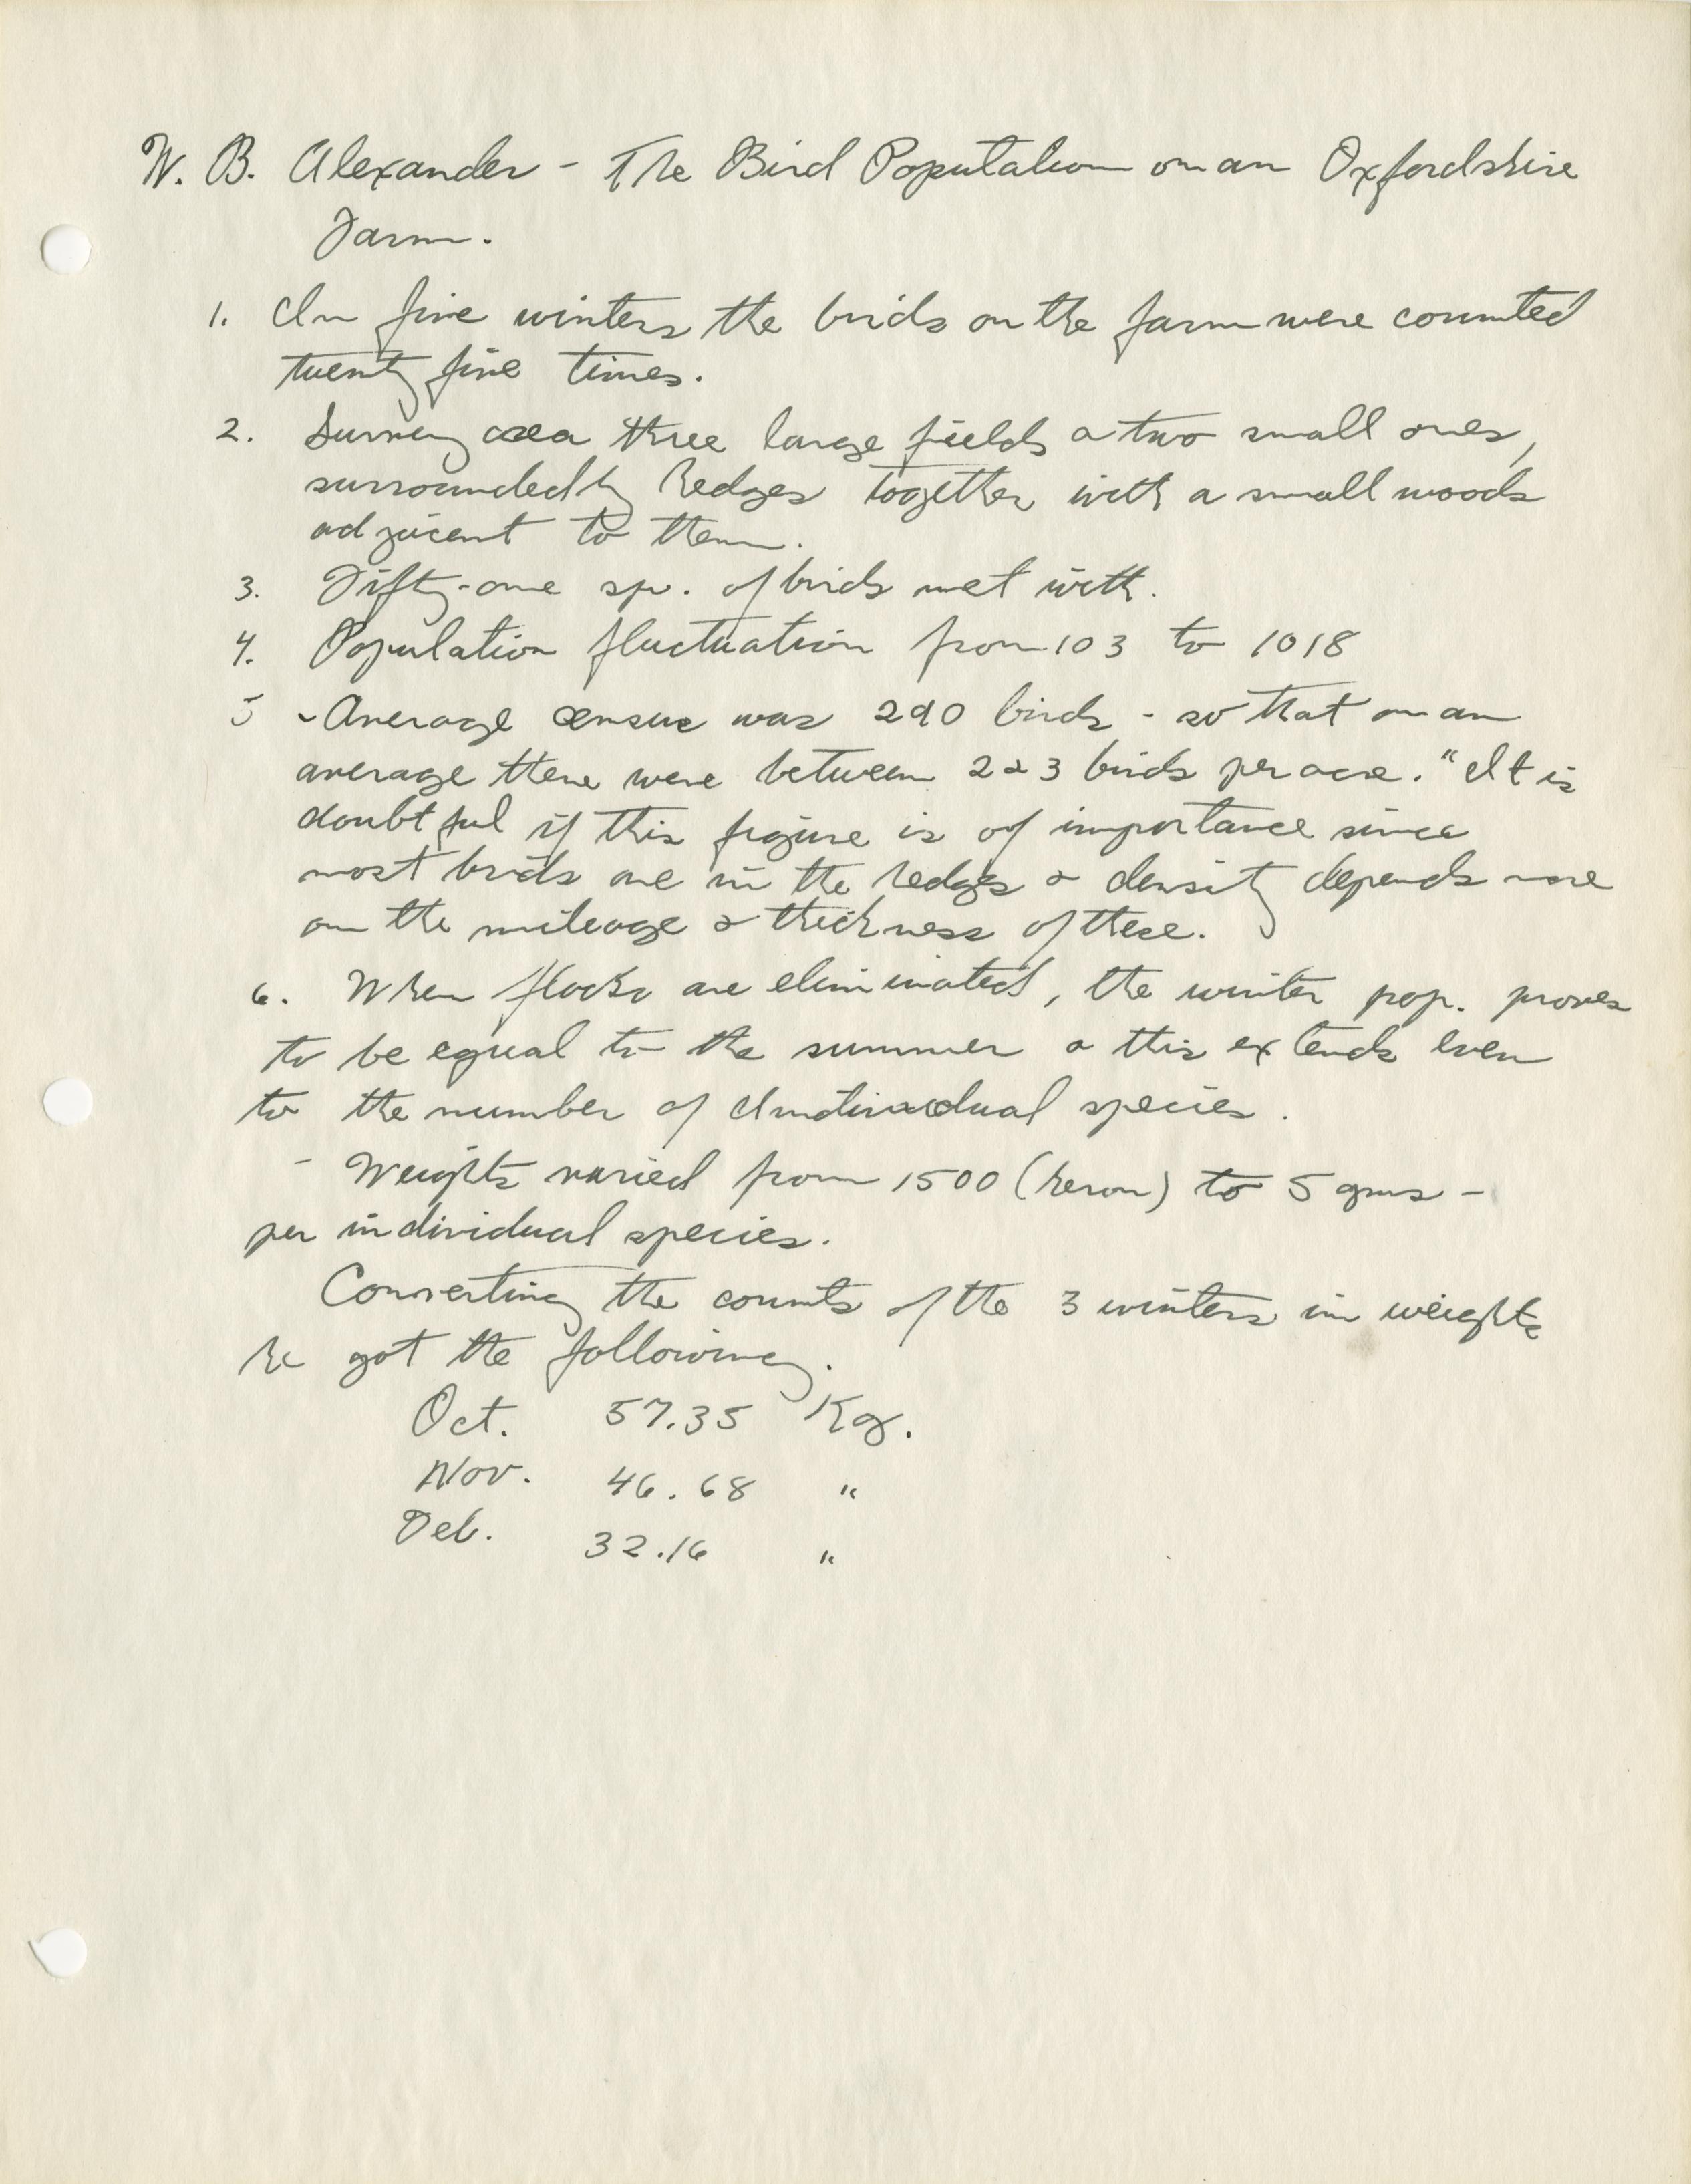 W. B. Alexander - The Bird Population on an Oxfordshire
Farm.
1. In five winters the birds on the farm were counted
twenty five times.
2. Survey area three large fields & two small ones,
surrounded by hedges together with a small woods
adjacent to them.
3. Fifty-one sp. of birds met with.
4. Population fluctuation from 103 to 1018
5 - Average census was 290 birds - so that on an
average there were between 2 & 3 birds per acre. "It is
doubtful if this figure is of importance since
most birds are in the hedges & density depends more
on the mileage & thickness of these.
6. When flocks are eliminated, the winter pop. proves
to be equal to the summer & this extends even
to the number of individual species.
- Weights varied from 1500 (heron) to 5 gms -
per individual species.
Converting the counts of the 3 winters in weights
he got the following.
Oct. 57.35 Kg.
Nov. 46.68 "
Feb. 32.16 "